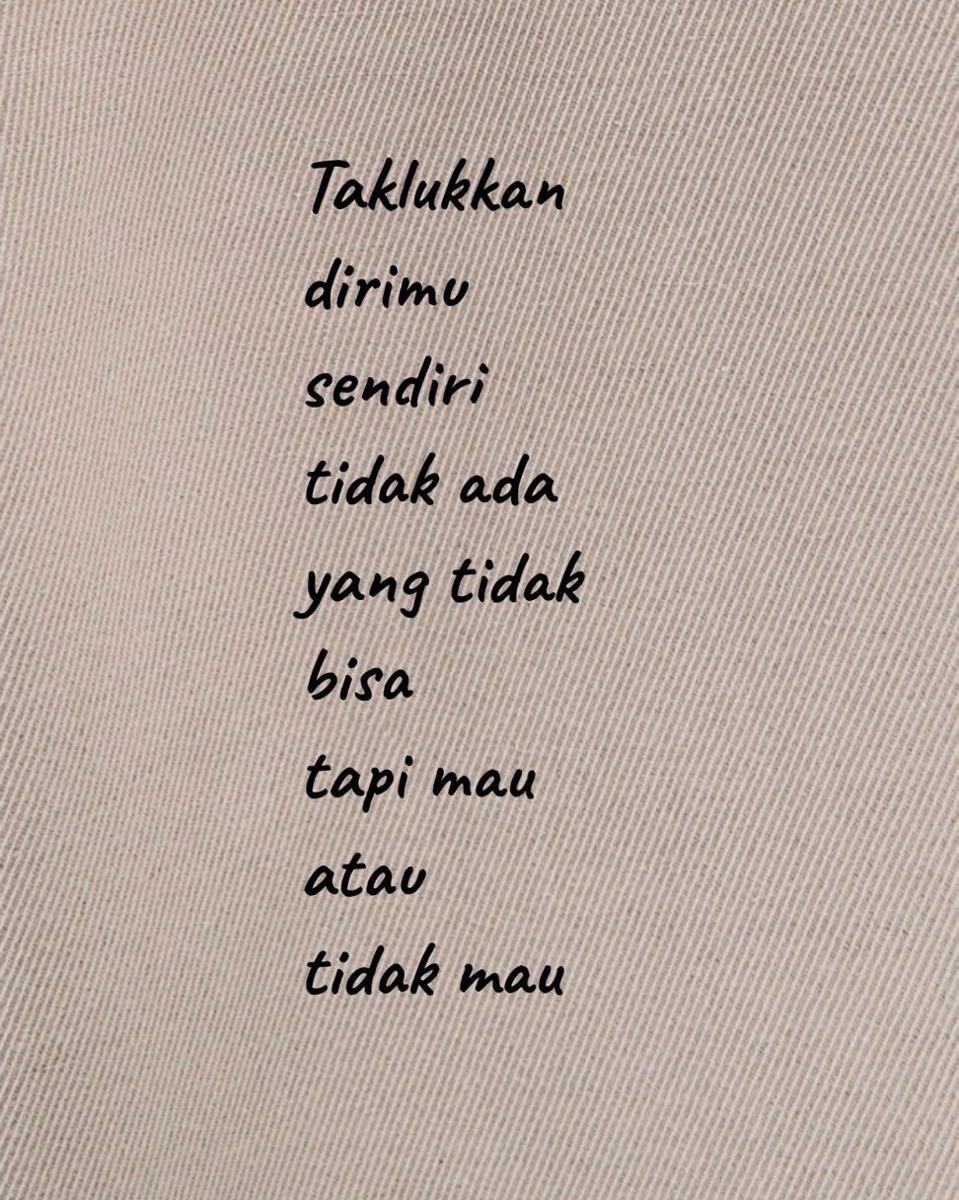 Taklukkan
dirimu
sendiri
tidak ada
yang tidak
bisa
tapi mau
atau
tidak mau